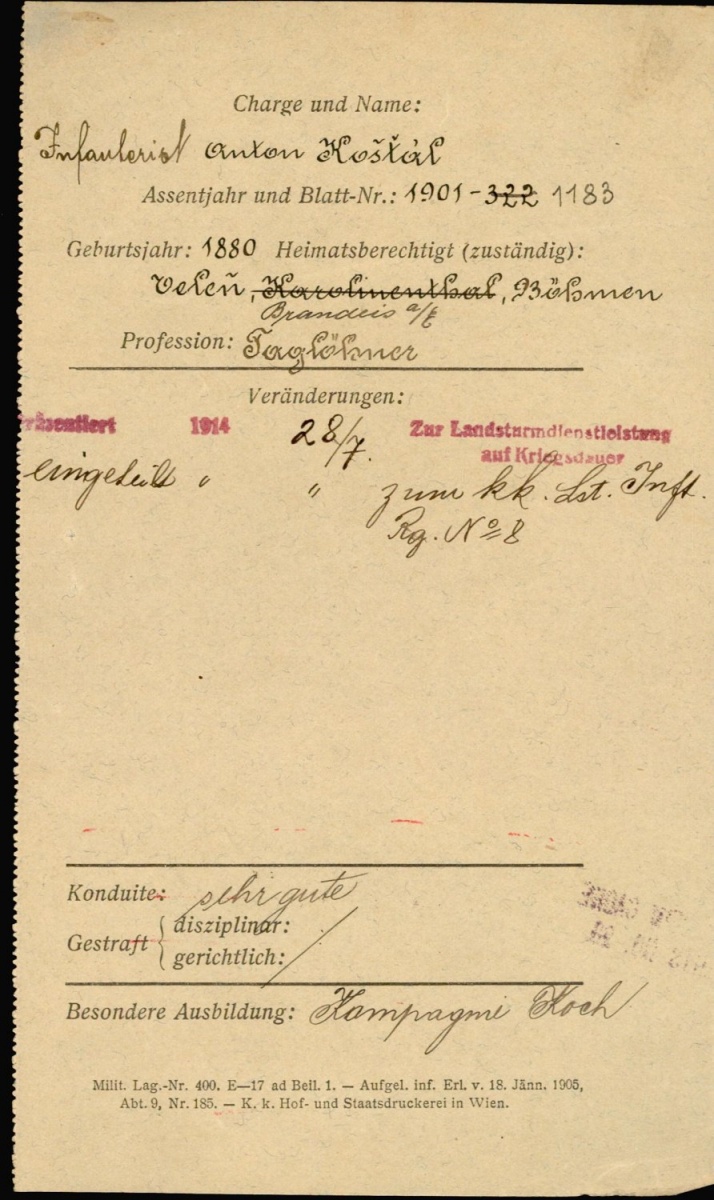 Charge und Name:
Infanterist Anton Košťál
Assentjahr und Blatt-Nr.: 1901-322 1183
Geburtsjahr: 1880 Heimatsberechtigt (zuständig):
Veleň, Karolinenthal, Böhmen
Brandeis a/E
Profession: Taglöhner
Veränderungen:
Präsentiert 1914 28/7. Zur Landsturmdienstleistung
auf Kriegsdauer
eingeteilt " " zum kk. Lst. Inft.
Rg. No 8
Konduite: sehr gute
Gestraft { disziplinar:
gerichtlich: /
Besondere Ausbildung: Kampagne Koch
Milit. Lag.-Nr. 400. E—17 ad Beil. 1. — Aufgel. inf. Erl. v. 18. Jänn. 1905,
Abt. 9, Nr. 185. — K. k. Hof- und Staatsdruckerei in Wien.